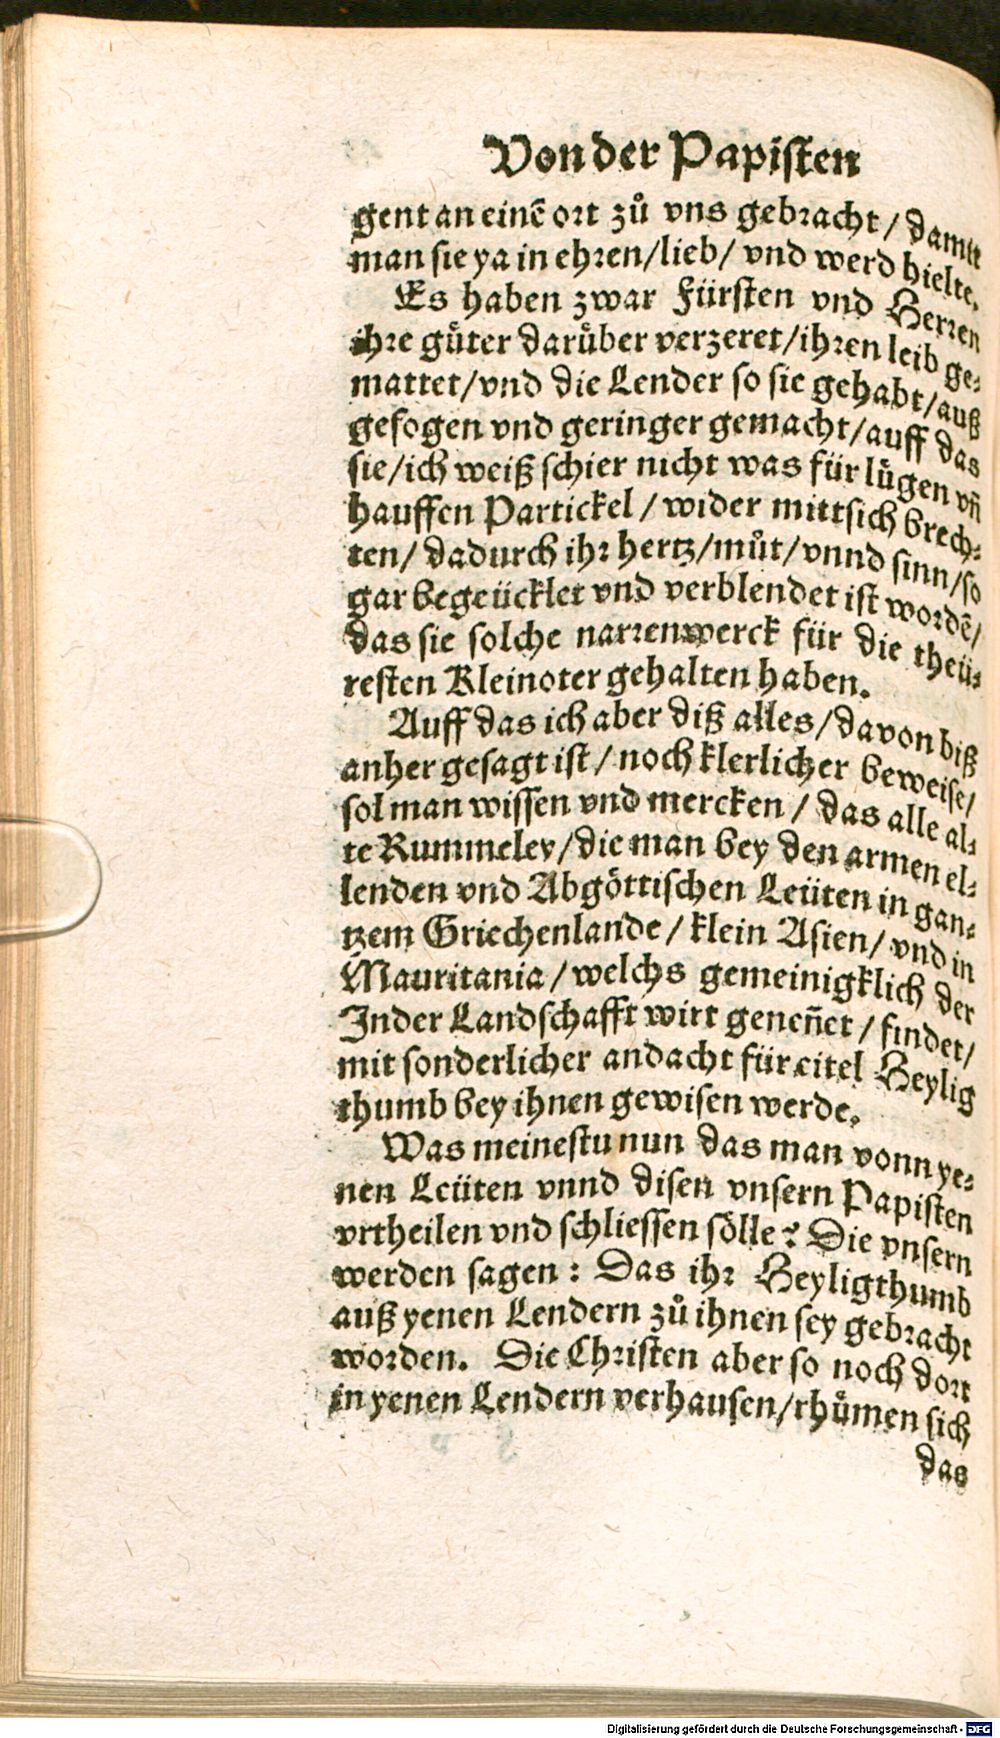 Von der Papisten
gent an einē ort zů vns gebracht / damit
man sie ya in ehren/lieb/ vnd werd hielte.
Es haben zwar Fürsten vnd Herren
ihre gůter darůber verzeret/ihren leib ge-
mattet/vnd die Lender so sie gehabt/auß
gesogen vnd geringer gemacht/auff das
sie/ich weiß schier nicht was für lůgen vñ
hauffen Partickel / wider mittsich brech-
ten/ dadurch ihr hertz/můt/vnnd sinn/so
gar begeücklet vnd verblendet ist wordē/
das sie solche narrenwerck für die theü-
resten Kleinoter gehalten haben.
Auff das ich aber diß alles/davon biß
anher gesagt ist/ noch klerlicher beweise/
sol man wissen vnd mercken / das alle al-
te Rummeley/die man bey den armen el-
lenden vnd Abgöttischen Leüten in gan-
tzem Griechenlande/ klein Asien/ vnd in
Mauritania /welchs gemeinigklich der
Inder Landschafft wirt geneñet / findet/
mit sonderlicher andacht für eitel Heylig
thumb bey ihnen gewisen werde.
Was meinestu nun das man vonn ye-
nen Leüten vnnd disen vnsern Papisten
vrtheilen vnd schliessen sölle? Die vnsern
werden sagen: Das ihr Heyligthumb
auß yenen Lendern zů ihnen sey gebracht
worden. Die Christen aber so noch dort
in yenen Lendern verhausen/rhůmen sich
das
Digitalisierung gefördert durch die Deutsche Forschungsgemeinschaft - DFG